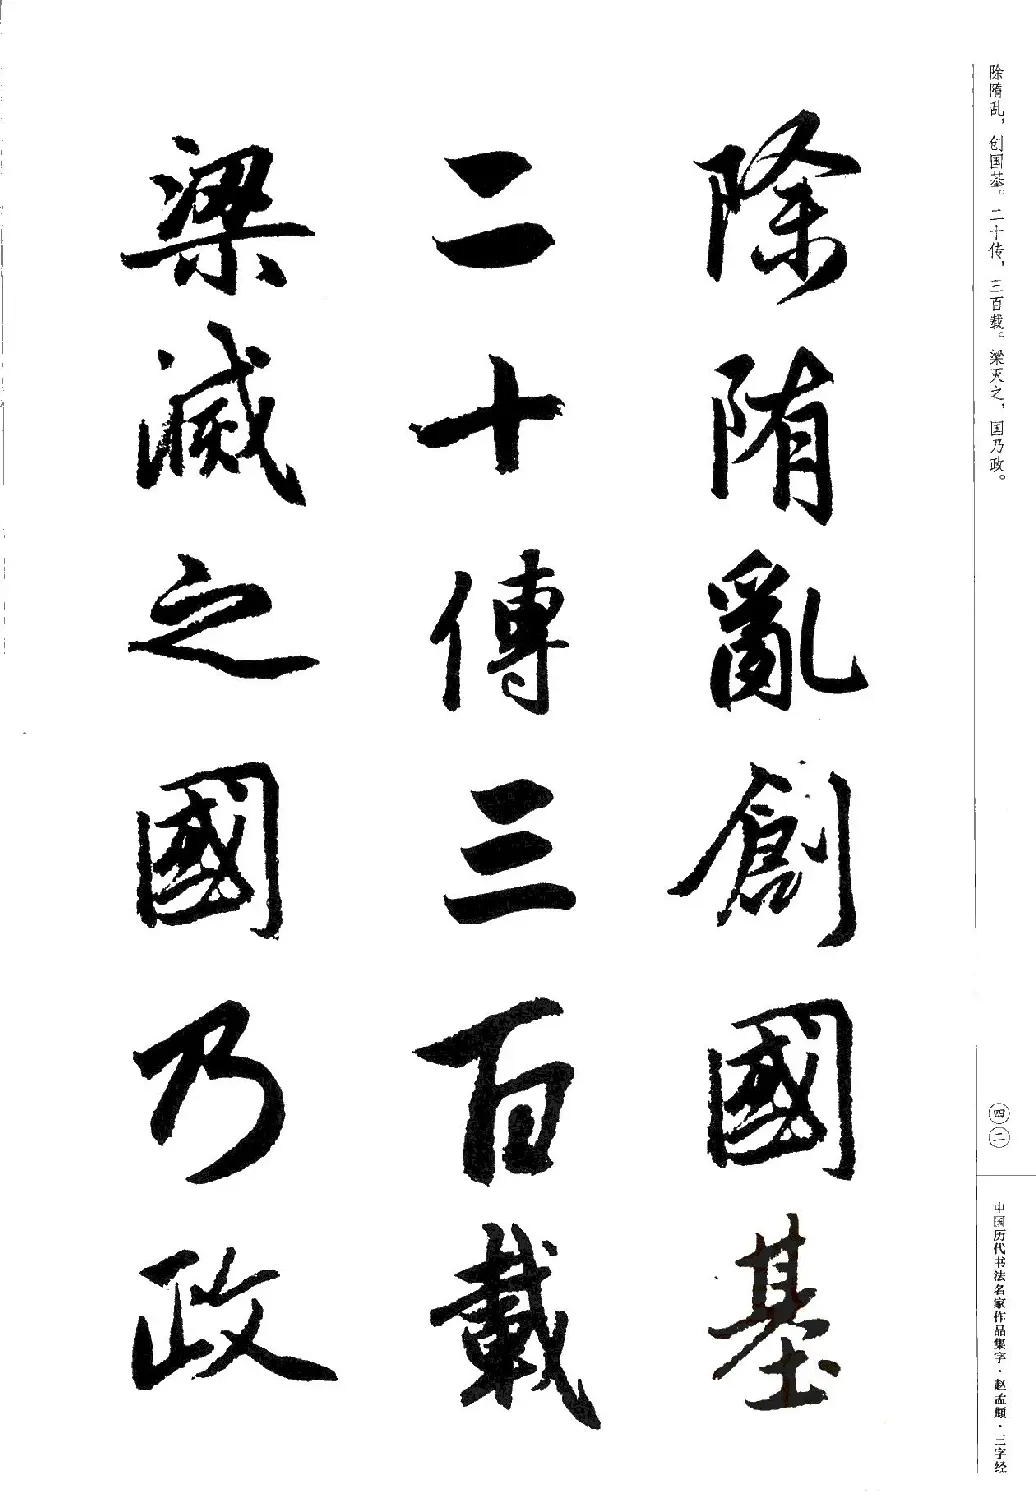 除隋亂創國基
二十傳三百載
梁滅之國乃政
除隋乱，创国基。二十传，三百载。梁灭之，国乃政。
四二
中国历代书法名家作品集字·赵孟頫·三字经